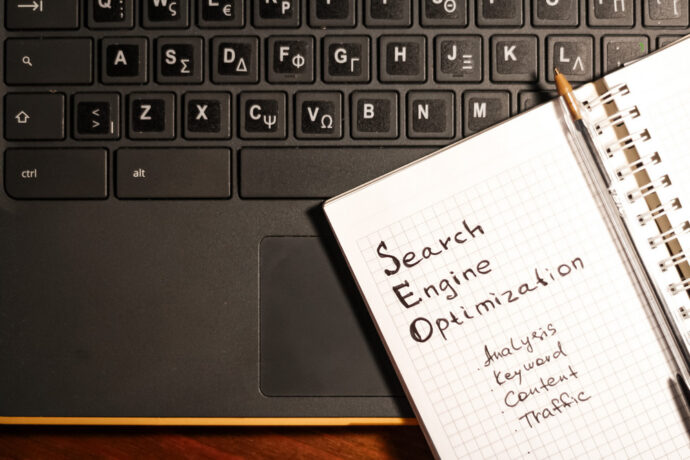 Q W ς E Є R P
A S Σ D Δ F Φ G Γ H J Ξ K L Λ
< > | Z X C Ψ V Ω B N M
ctrl alt
Search
Engine
Optimization
. Analysis
. Keyword
. Content
. Traffic